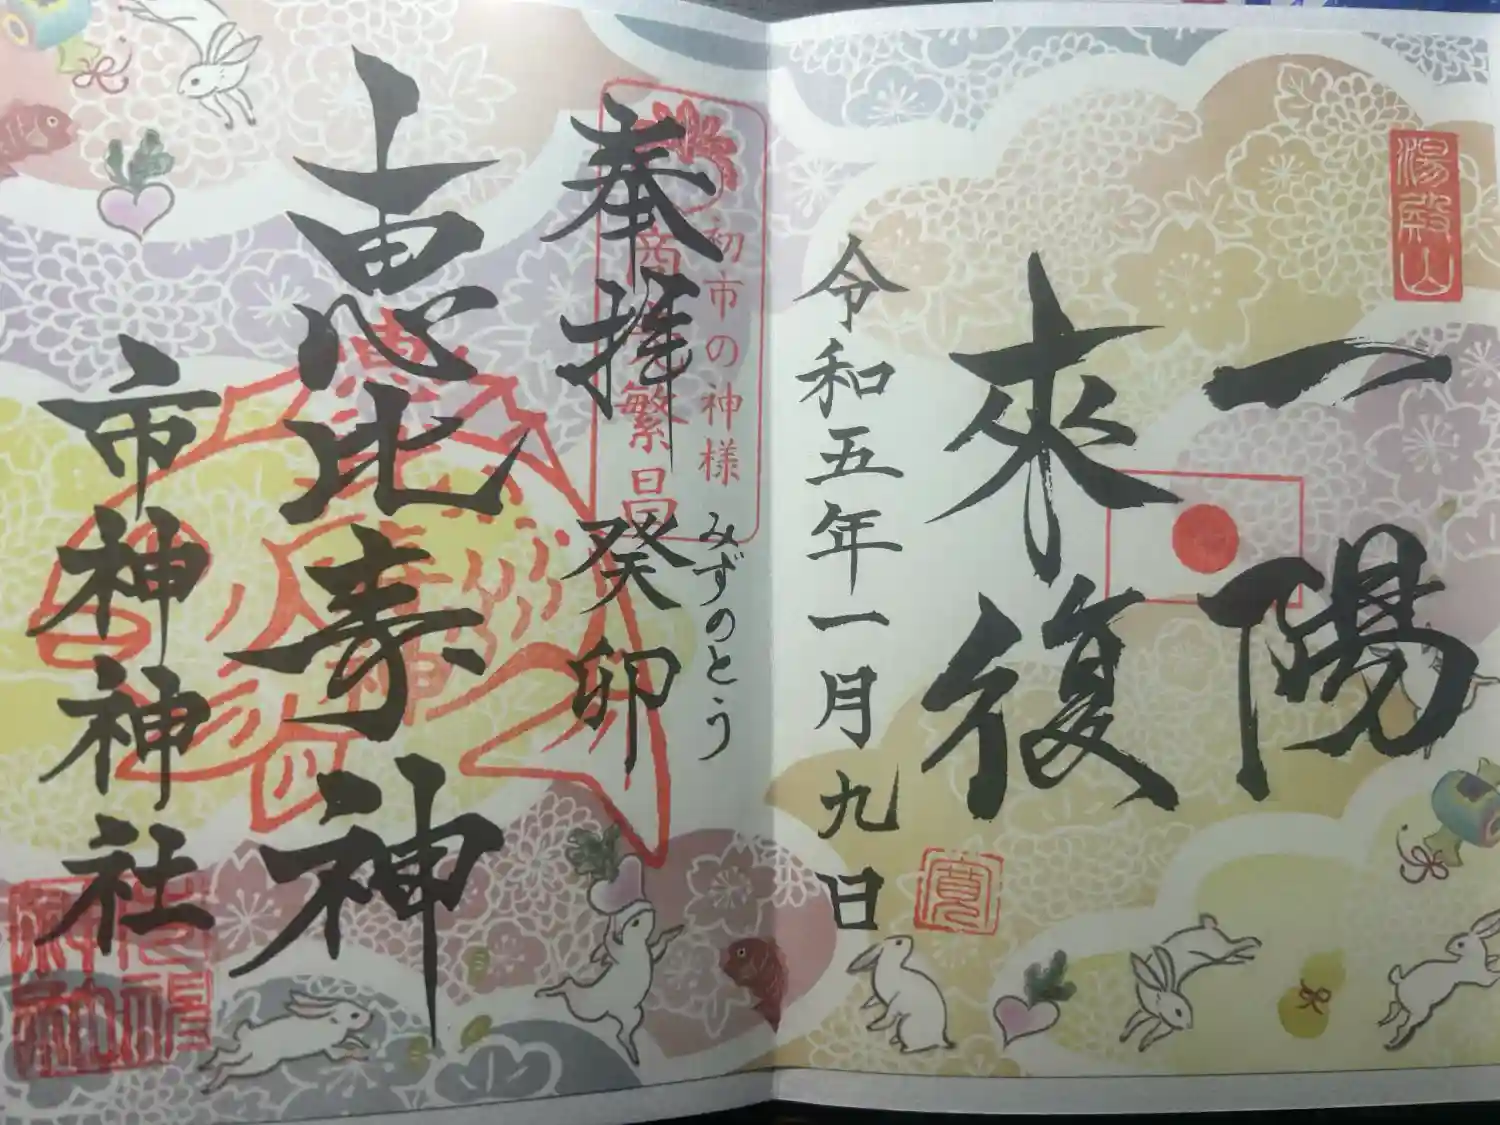 湯殿山
一陽
來復
令和五年一月九日
初市の神様
商売繁昌
奉拝
癸卯
みずのとう
恵比寿神
市神神社